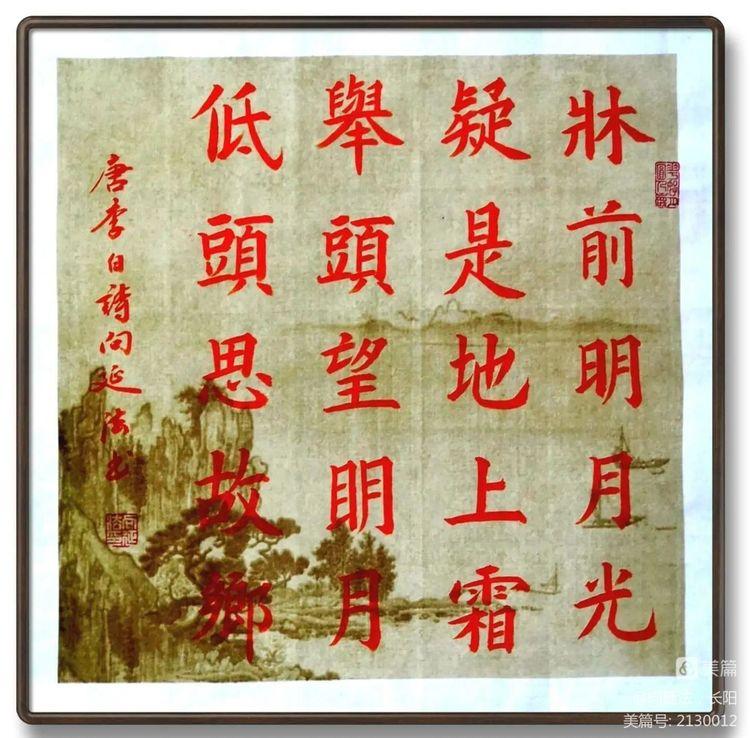 牀前明月光
疑是地上霜
舉頭望眀月
低頭思故鄉
唐李白詩向延法书
美篇
长阳
美篇号: 2130012